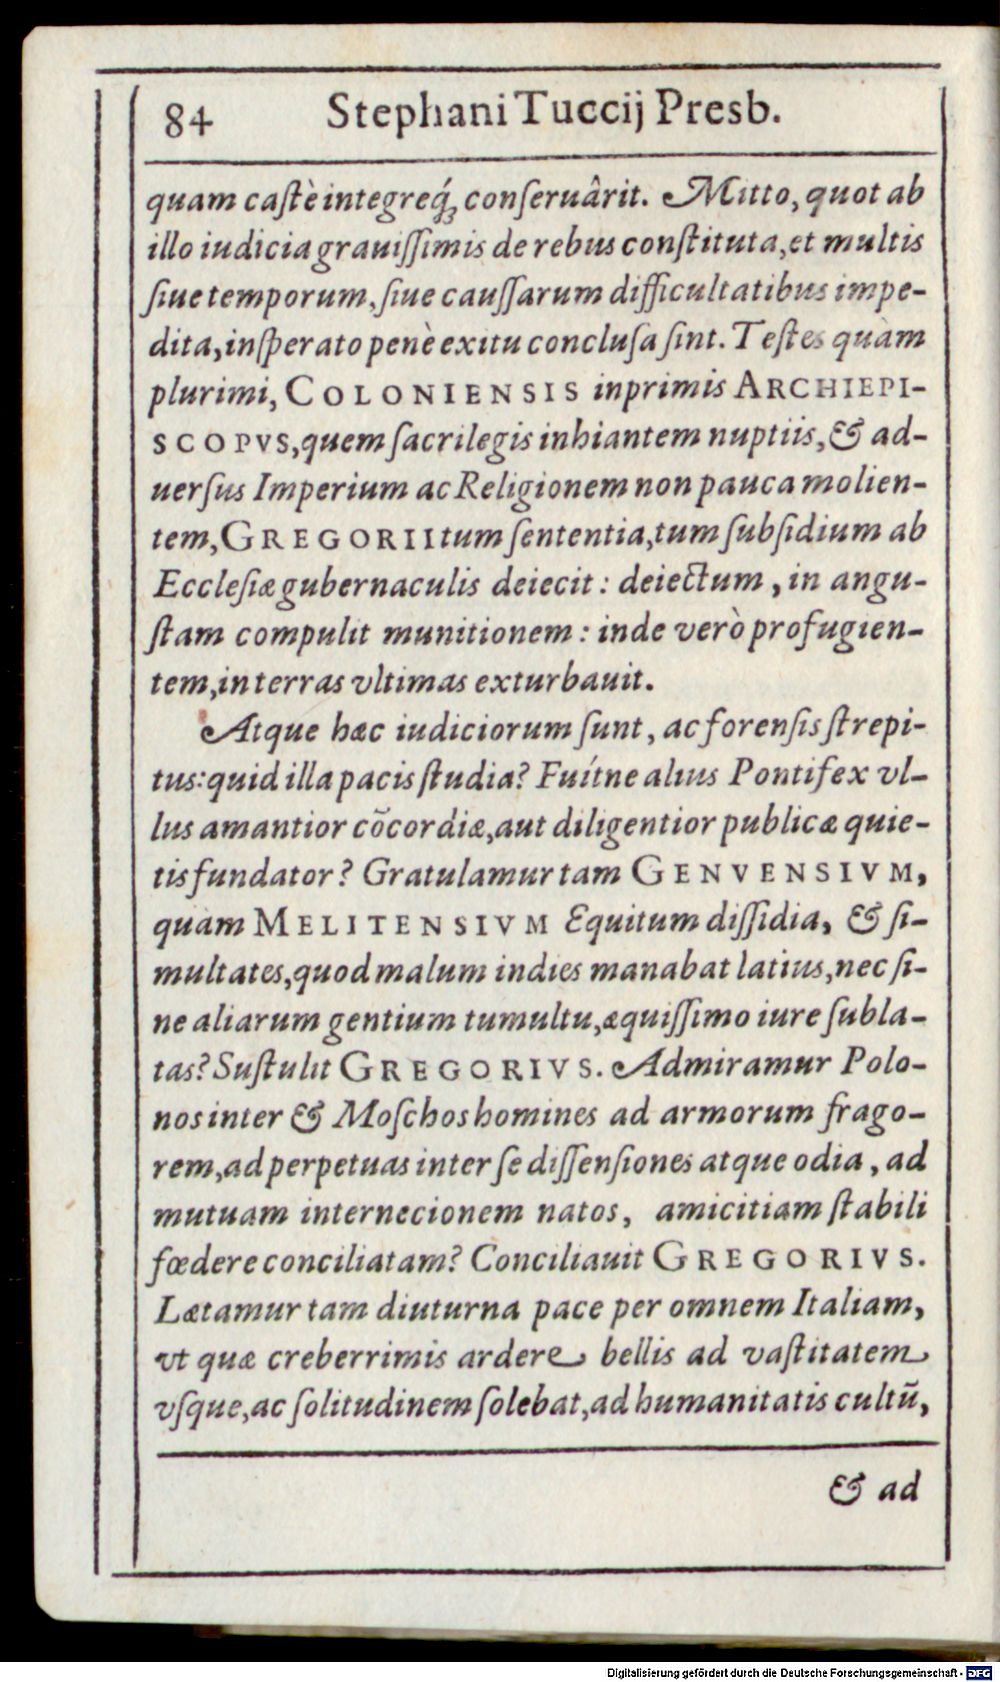 84 Stephani Tuccij Presb.
quam castè integreq́; conseruârit. Mitto, quot ab
illo iudicia grauissimis de rebus constituta, et multis
siue temporum, siue caussarum difficultatibus impe-
dita, insperato penè exitu conclusa sint. Testes quàm
plurimi, COLONIENSIS inprimis ARCHIEPI-
SCOPVS, quem sacrilegis inhiantem nuptiis, & ad-
uersus Imperium ac Religionem non pauca molien-
tem, GREGORII tum sententia, tum subsidium ab
Ecclesiæ gubernaculis deiecit: deiectum, in angu-
stam compulit munitionem: inde verò profugien-
tem, in terras vltimas exturbauit.
Atque hæc iudiciorum sunt, ac forensis strepi-
tus: quid illa pacis studia? Fuítne alius Pontifex vl-
lus amantior cõcordiæ, aut diligentior publicæ quie-
tis fundator? Gratulamur tam GENVENSIVM,
quàm MELITENSIVM Equitum dissidia, & si-
multates, quod malum indies manabat latius, nec si-
ne aliarum gentium tumultu, æquissimo iure subla-
tas? Sustulit GREGORIVS. Admiramur Polo-
nos inter & Moschos homines ad armorum frago-
rem, ad perpetuas inter se dissensiones atque odia, ad
mutuam internecionem natos, amicitiam stabili
fœdere conciliatam? Conciliauit GREGORIVS.
Lætamur tam diuturna pace per omnem Italiam,
vt quæ creberrimis ardere bellis ad vastitatem
vsque, ac solitudinem solebat, ad humanitatis cultũ,
& ad
Digitalisierung gefördert durch die Deutsche Forschungsgemeinschaft - DFG